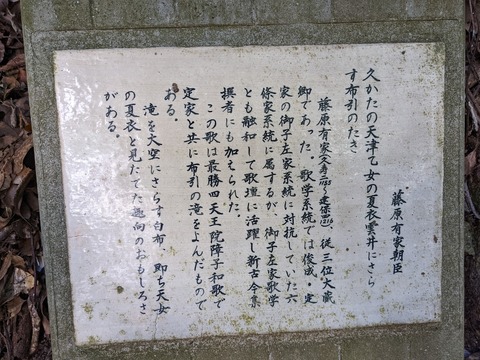 藤原有家朝臣
久かたの天津乙女の夏衣雲井にさら
す布引のたき
藤原有家久寿二1155～建保四1216、従三位大蔵
卿であった。歌学系統では俊成・定
家の御子左家系統に対抗していた六
條家系統に属するが、御子左家歌学
とも融和して歌壇に活躍し新古今集
撰者にも加えられた。
この歌は最勝四天王院障子和歌で
定家と共に布引の滝をよんだもので
ある。
滝を大空にさらす白布　即ち天女
の夏衣と見たてた趣向のおもしろさ
がある。